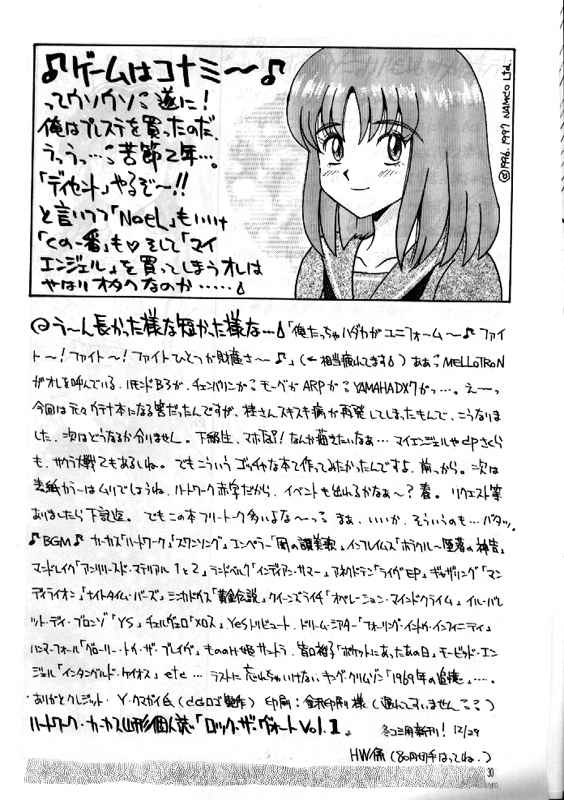 ♪ゲームはコナミ〜♪
ってウソウソ 遂に!
俺はプレステを買ったのだ.
うっうっ…苦節2年…。
「ディセント」やるぞ〜!!
と言いつつ「NoëL」もいいけ
「くの一番」も♡そして「マイ
エンジェル」を買ってしまうオレは
やはりオタクなのか……
©1996.1997 NAMCO Ltd.
う〜ん長かった様な短かった様な…「俺たっちゃハダカがユニフォーム〜♪ファイ
ト〜!ファイト〜!ファイトひとつが財産さ〜♪」(←相当疲れてます)ああMELLOTRON
がオレを呼んでいる.ハモンドB3が.チェンバリンが モーグが ARPが YAMAHA DX7がっ…。えーっ
今回は元々 本になる筈だったんですが、桂さんスキスキ病が再発してしまったもんで、こうなりま
した.次はどうなるか分りません。下級生、 なんか描きたいなぁ…マイエンジェルや
も、サクラ大戦てもあるしね。でもこういうゴッチャな本て作ってみたかったんですよ.前っから。次は
表紙カラーはムリでしょうね.ハートワーク赤字だから、イベントも出れるかなぁ〜?春。リクエスト等
ありましたら下記迄。でもこの本フリートーク多いよな〜っ まぁ、いいか.そういうのも…バタッ.
♪BGM♪カーカス「ハートワーク」「スワンソング」エンペラー「闇の讃美歌」インフレイムス「
マンドレイク「アンリリースド・マテリアル1と2」ランドベルク「インディアン・サマー」アネクドテン「ライヴEP」ギャザリング「マン
ディライオン」「ナイトタイム・バーズ」ミンカドゥス「黄金伝説」クイーンズライチ「オペレーション・マインドクライム」イル・バレ
ット・ディ・ブロンゾ「YS」チェルヴェロ「メロス」Yesトリビュート.ドリーム・シアター「フォーリング・イントゥ・インフィニティ」
ハンマーフォール「グローリー・トゥ・ザ・ブレイヴ」もののけ姫サントラ.皆口裕子「ポケットにあったあの日」モービッド・エン
ジェル「 」etc…ラストに忘れちゃいけないキング・クリムゾン「1969年の追憶」….
ありがとクレジット.Y・クマガイ氏( ロゴ製作)印刷:金沢印刷様(遅れてすいません)
ハートワーク・カーカス山形個人誌「ロック・ザ・ヴォートVol.1」 冬コミ用新刊!12/29
HW係(80円切手はってね.)
30